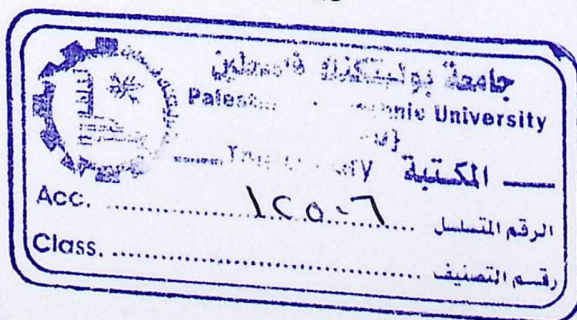 جامعة بوليتكنك فلسطين
University
المكتبة
Acc. ............ ١٢٥٠٦ ............ الرقم المتسلسل
Class. ............ رقم التصنيف